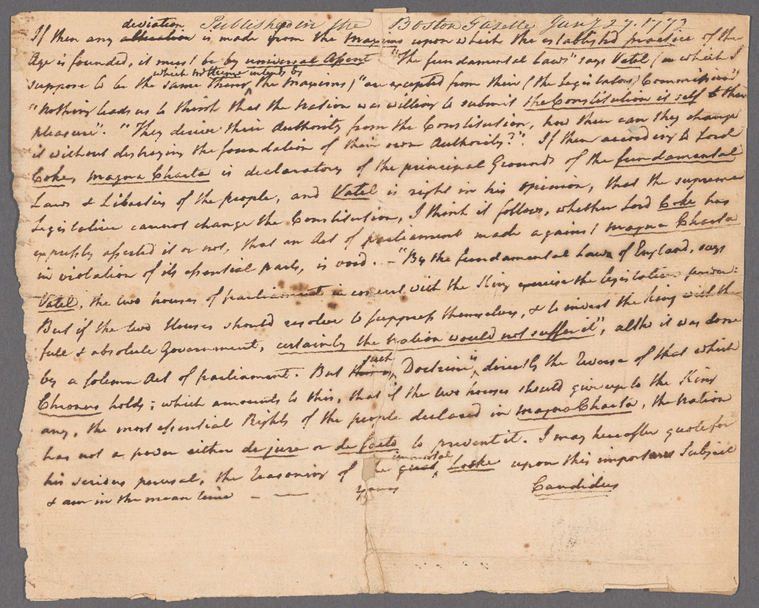 Published in the Boston Gazette Jany 27. 1772
deviation
If then any alteration is made from the maxims upon which the established practice of the
Age is founded, it must be by universal Assent "The fundamental Laws" says Vatel (in which I
which mitigime
suppose to be the same thing the maxims) "are excepted from their (the legislators) Commission"
"nothing leads us to think that the nation was willing to submit the Constitution itself to their
pleasure". "They derive their Authority from the Constitution, how then can they change
it without destroying the foundation of their own Authority?". If then according to Lord
Coke, magna Charta is declaratory of the principal Grounds of the fundamental
Laws & Liberties of the people, and Vatel is right in his opinion, that the supreme
legislative cannot change the Constitution, I think it follows, whether Lord Coke has
expressly asserted it or not, that an Act of parliament made against magna Charta
in violation of its essential parts, is void. — "By the fundamental Laws of England, says
Vatel, the two houses of parliament in concert with the King exercise the legislative power:
But if the two Houses should resolve to suppress themselves, & to invest the King with the
full & absolute Government, certainly the nation would not suffer it", altho it was done
by a solemn Act of parliament. But such Doctrine is directly the reverse of that which
Chronus holds; which amounts to this, that if the two houses should give up to the King
any, the most essential Rights of the people declared in magna Charta, the nation
has not a power either de jure or de facto to prevent it. I may hereafter quote for
immortal
his serious perusal, the reasoning of the great Locke upon this important Subject
& am in the mean time — — yours
Candidus